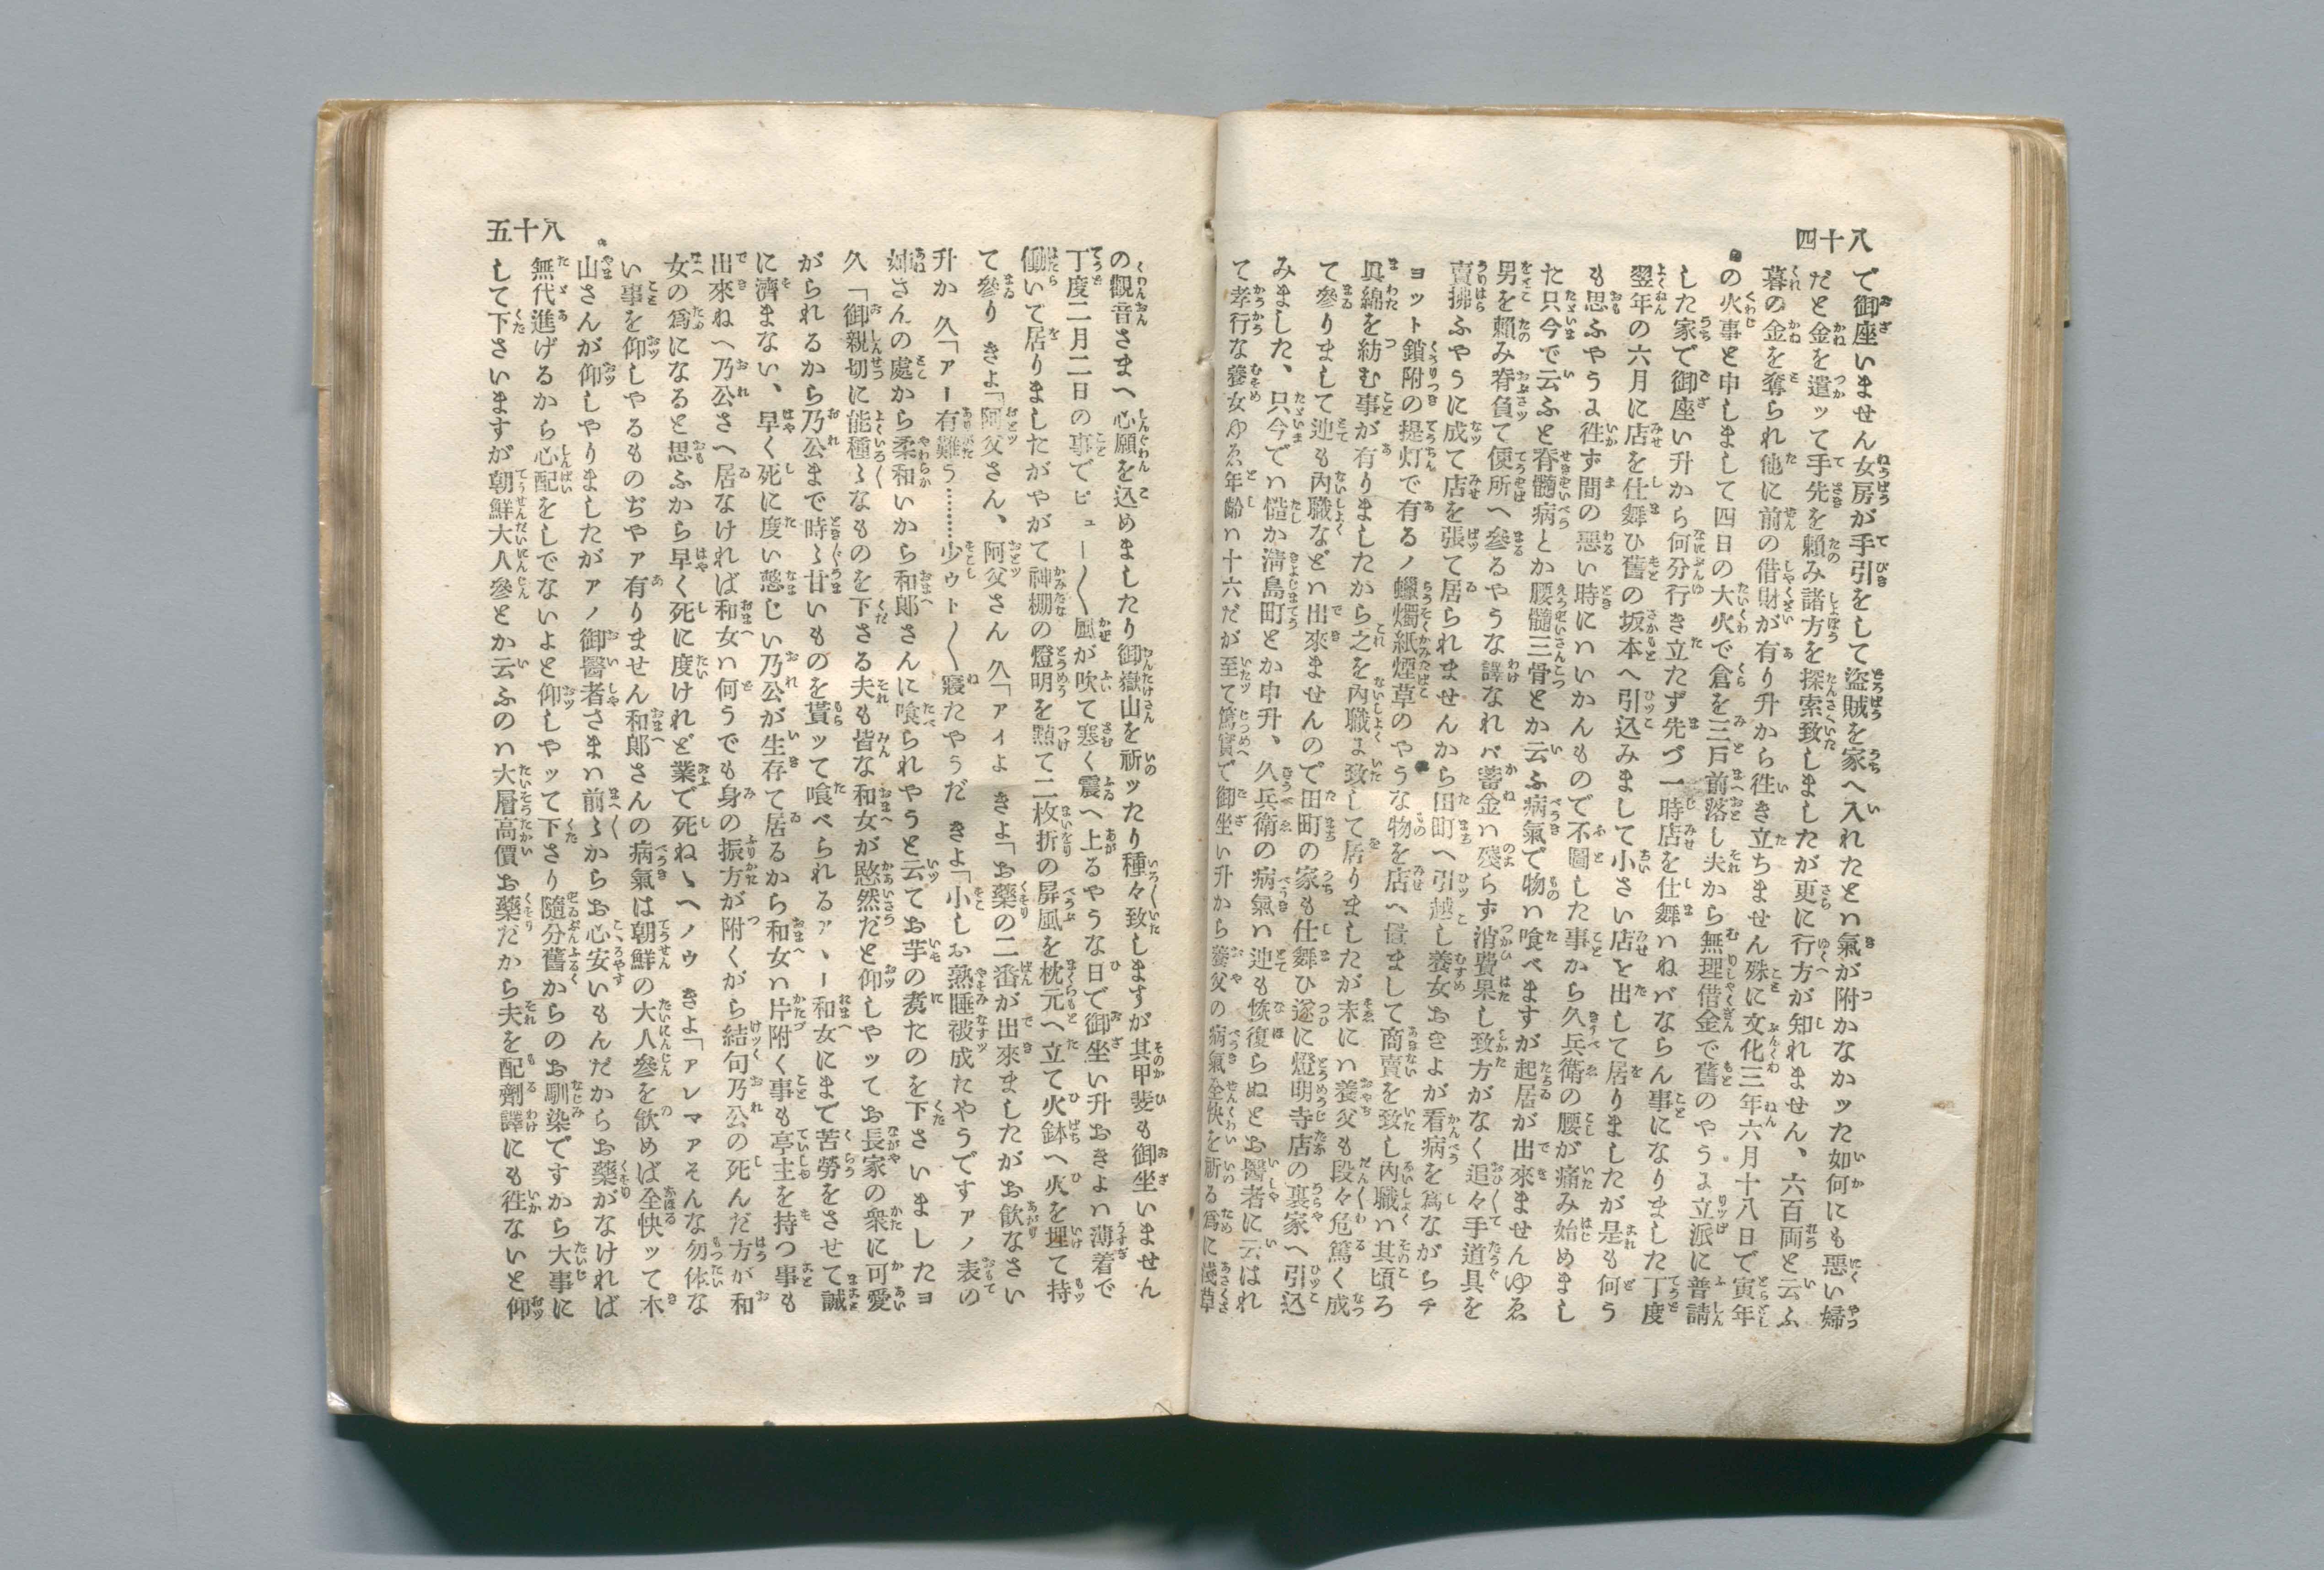 八十四
で御座いません女房が手引をして盗賊を家へ入れたとハ氣が附かなかッた如何にも惡い婦
だと金を遣ッて手先を賴み諸方を探索致しましたが更に行方が知れません、六百両と云ふ
暮の金を奪られ他に前の借財が有り升から徃き立ちません殊に文化三年六月十八日で寅年
の火事と申しまして四日の大火で倉を三戸前落し夫から無理借金で舊のやうよ立派に普請
した家で御座い升から何分行き立たず先づ一時店を仕舞ハねバならん事になりました丁度
翌年の六月に店を仕舞ひ舊の坂本へ引込みまして小さい店を出して居りましたが是も何う
も思ふやうよ徃ず間の惡い時にハいかんもので不圖した事から久兵衛の腰が痛み始めまし
た只今で云ふと脊髓病とか腰髓三骨とか云ふ病氣で物ハ喰べますが起居が出來ませんゆゑ
男を賴み脊負て便所へ參るやうな譯なれバ蓄金ハ殘らず消費果し致方がなく追々手道具を
賣拂ふやうに成て店を張て居られませんから田町へ引越し養女おきよが看病を爲ながらチ
ヨット鎖附の提灯で有るノ蠟燭紙煙草のやうな物を店へ置まして商賣を致し內職ハ其頃ろ
眞綿を紡む事が有りましたから之を內職よ致して居りましたが末にハ養父も段々危篤く成
て參りまして迚も內職などハ出來ませんので田町の家も仕舞ひ遂に燈明寺店の裏家へ引込
みました、只今でハ慥か淸島町とか申升、久兵衛の病氣ハ迚も恢復らぬとお醫者に云はれ
て孝行な養女ゆゑ年齡ハ十六だが至て篤實で御坐い升から養父の病氣全快を祈る爲に淺草
八十五
の觀音さまへ心願を込めましたり御嶽山を祈ッたり種々致しますが其甲斐も御坐いません
丁度二月二日の事でピュー〱風が吹て寒く震へ上るやうな日で御坐い升おきよハ薄着で
働いて居りましたがやがて神棚の燈明を點て二枚折の屏風を枕元へ立て火鉢へ火を埋て持
て參り　きよ「阿父さん、阿父さん　久「アイよ　きよ「お藥の二番が出來ましたがお飮なさい
升か　久「アー有難う………少ウト〱寢たやうだ　きよ「小しお熟睡被成たやうですアノ表の
姉さんの處から柔和いから和郎さんに喰られやうと云てお芋の煑たのを下さいましたヨ
久「御親切に能種〻なものを下さる夫も皆な和女が愍然だと仰しやッてお長家の衆に可愛
がられるから乃公まで時〻甘いものを貰ッて喰べられるアヽー和女にまで苦勞をさせて誠
に濟まない、早く死に度い憖じい乃公が生存て居るから和女ハ片附く事も亭主を持つ事も
出來ねヘ乃公さへ居なければ和女ハ何うでも身の振方が附くがら結句乃公の死んだ方が和
女の爲になると思ふから早く死に度けれど業で死ねヽヘノウ　きよ「アレマアそんな勿体な
い事を仰しやるものぢやア有りません和郎さんの病氣は朝鮮の大人參を飮めば全快ッて木
山さんが仰しやりましたがアノ御醫者さまハ前〻からお心安いもんだからお藥がなければ
無代進げるから心配をしでないよと仰しやッて下さり隨分舊からのお馴染ですから大事に
して下さいますが朝鮮大人參とか云ふのハ大層高價お藥だから夫を配劑譯にも徃ないと仰